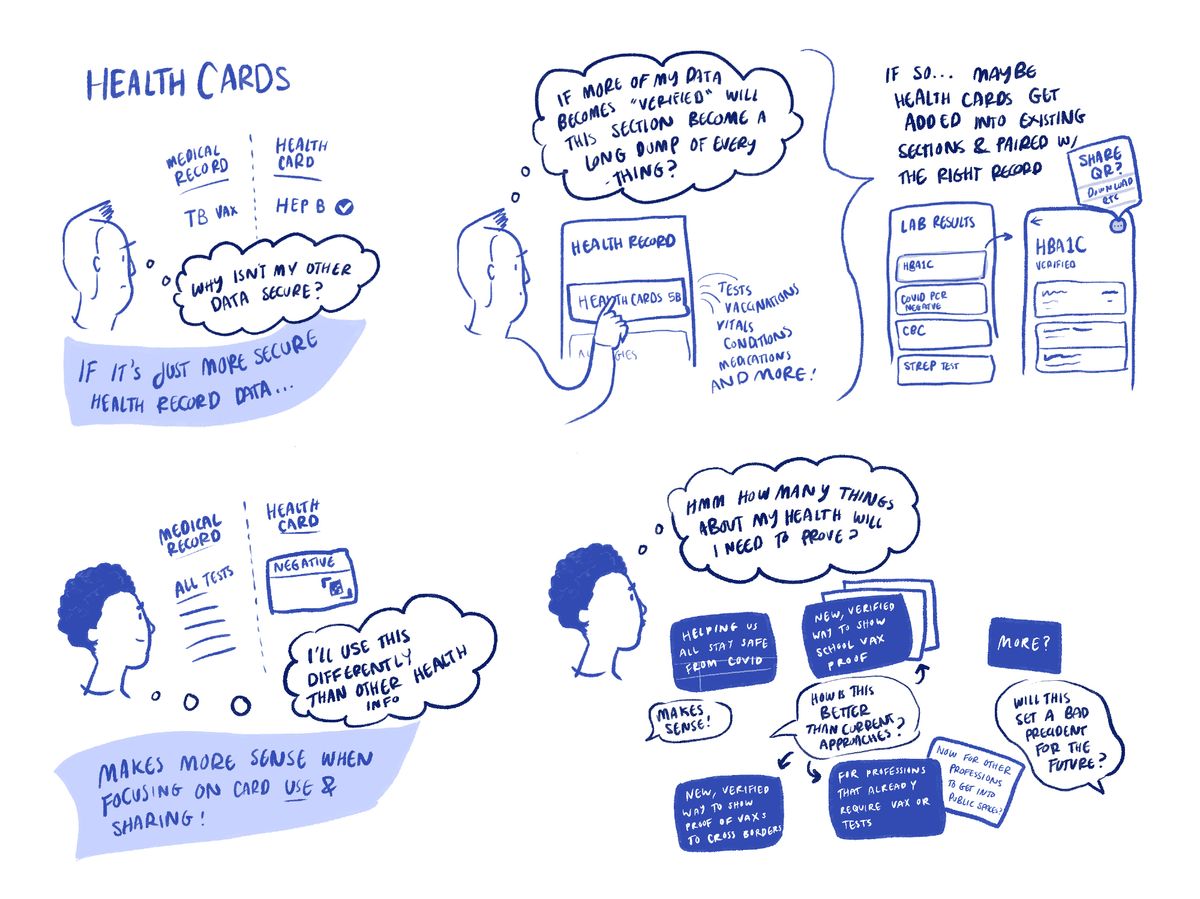 HEALTH CARDS
MEDICAL
RECORD
HEALTH
CARD
TB VAX
HEP B
WHY ISN'T MY OTHER
DATA SECURE?
IF IT'S JUST MORE SECURE
HEALTH RECORD DATA...
IF MORE OF MY DATA
BECOMES "VERIFIED" WILL
THIS SECTION BECOME A
LONG DUMP OF EVERY
-THING?
HEALTH RECORD
HEALTH CARDS 5B
TESTS
VACCINATIONS
VITALS
CONDITIONS
MEDICATIONS
AND MORE!
IF SO... MAYBE
HEALTH CARDS GET
ADDED INTO EXISTING
SECTIONS & PAIRED W/
THE RIGHT RECORD
SHARE
QR?
DOWNLOAD
ETC
LAB RESULTS
HBA1C
COVID PCR
NEGATIVE
CBC
STREP TEST
HBA1C
VERIFIED
MEDICAL
RECORD
HEALTH
CARD
ALL TESTS
NEGATIVE
I'LL USE THIS
DIFFERENTLY
THAN OTHER HEALTH
INFO
MAKES MORE SENSE WHEN
FOCUSING ON CARD USE &
SHARING!
HMM HOW MANY THINGS
ABOUT MY HEALTH WILL
I NEED TO PROVE?
HELPING US
ALL STAY SAFE
FROM COVID
MAKES
SENSE!
NEW, VERIFIED
WAY TO SHOW
SCHOOL VAX
PROOF
HOW IS THIS
BETTER
THAN CURRENT
APPROACHES?
MORE?
WILL THIS
SET A BAD
PRECIDENT
FOR THE
FUTURE?
NEW, VERIFIED
WAY TO SHOW
PROOF OF VAXS
TO CROSS BORDERS
FOR PROFESSIONS
THAT ALREADY
REQUIRE VAX OR
TESTS
NOW FOR OTHER
PROFESSIONS
TO GET INTO
PUBLIC SPACES?